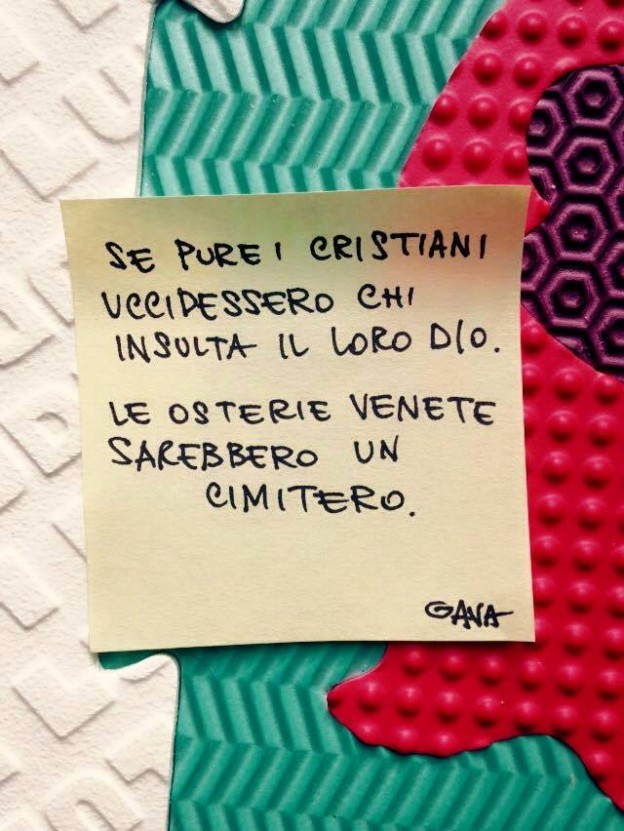 SE PURE I CRISTIANI
UCCIDESSERO CHI
INSULTA IL LORO DIO.
LE OSTERIE VENETE
SAREBBERO UN
CIMITERO.
GAVA